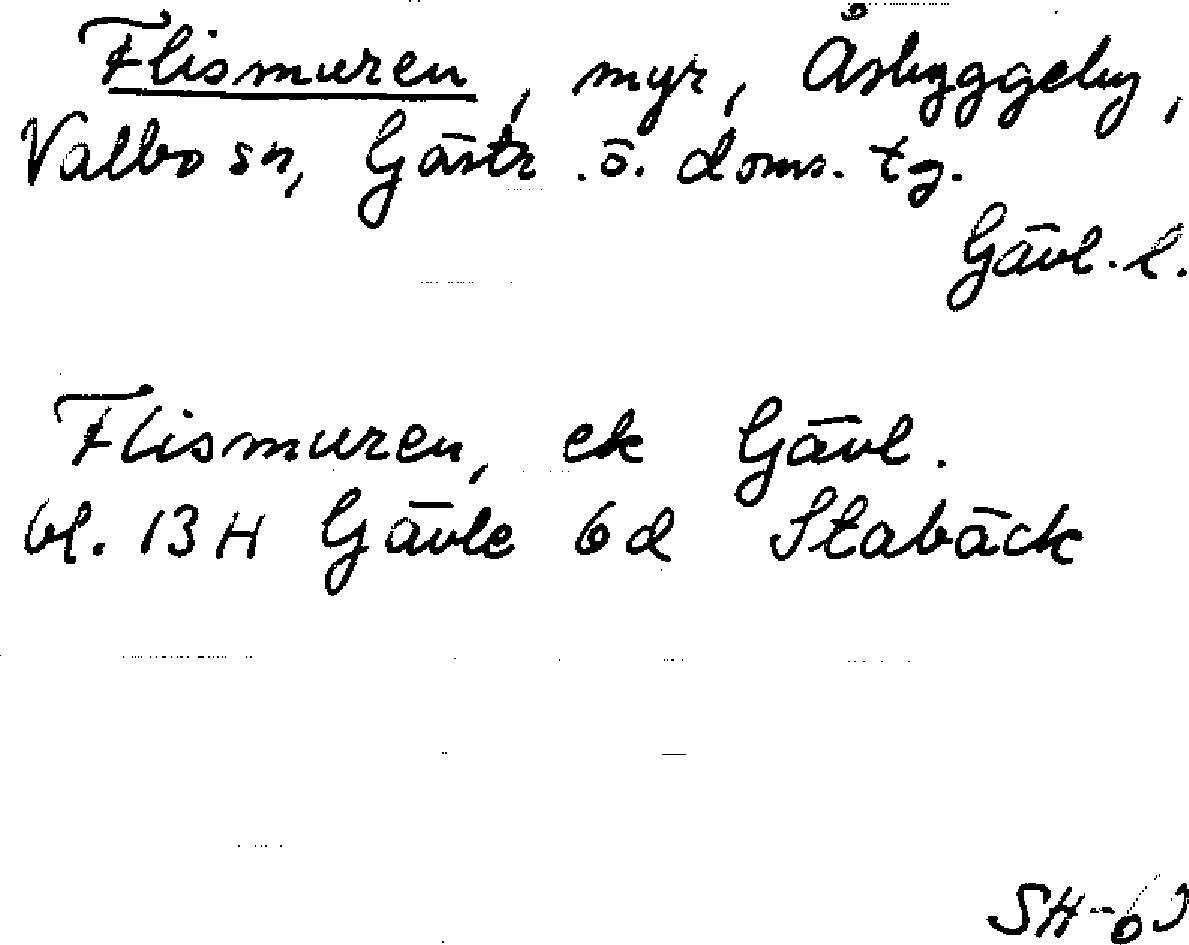 Flismuren, myr, Åsbyggeby,
Valbo sn, Gästr. ö. doms. tg.
Gävl. l.
Flismuren, ek Gävl.
bl. 13H Gävle 6d Stabäck